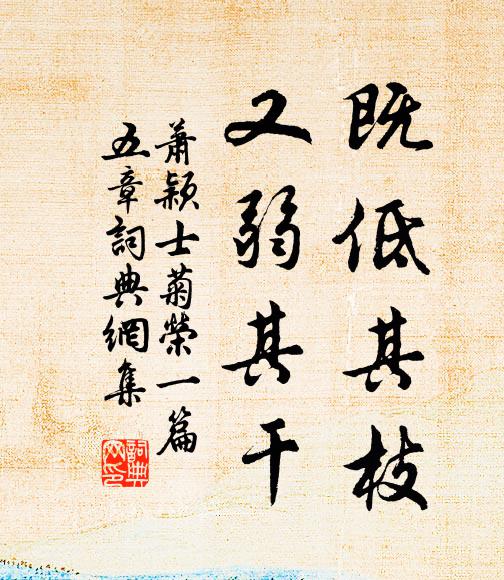 既低其枝
又弱其干
萧颖士菊榮一篇
五章詞典網集
詞典網印